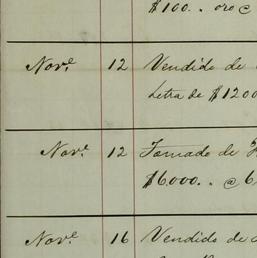 $100.. oro @
Nov.e 12 Vendido de
Letra de $1200
Nov.e 12 Tomado de
$6000.. @ 6
Nov.e 16 Vendido de